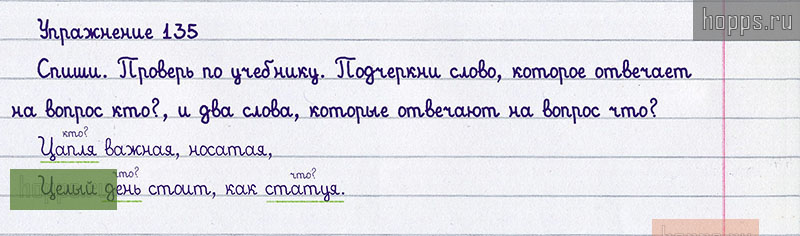 hopps.ru
Упражнение 135
Спиши. Проверь по учебнику. Подчеркни слово, которое отвечает
на вопрос кто?, и два слова, которые отвечают на вопрос что?
кто?
Цапля важная, носатая,
что? что?
Целый день стоит, как статуя.